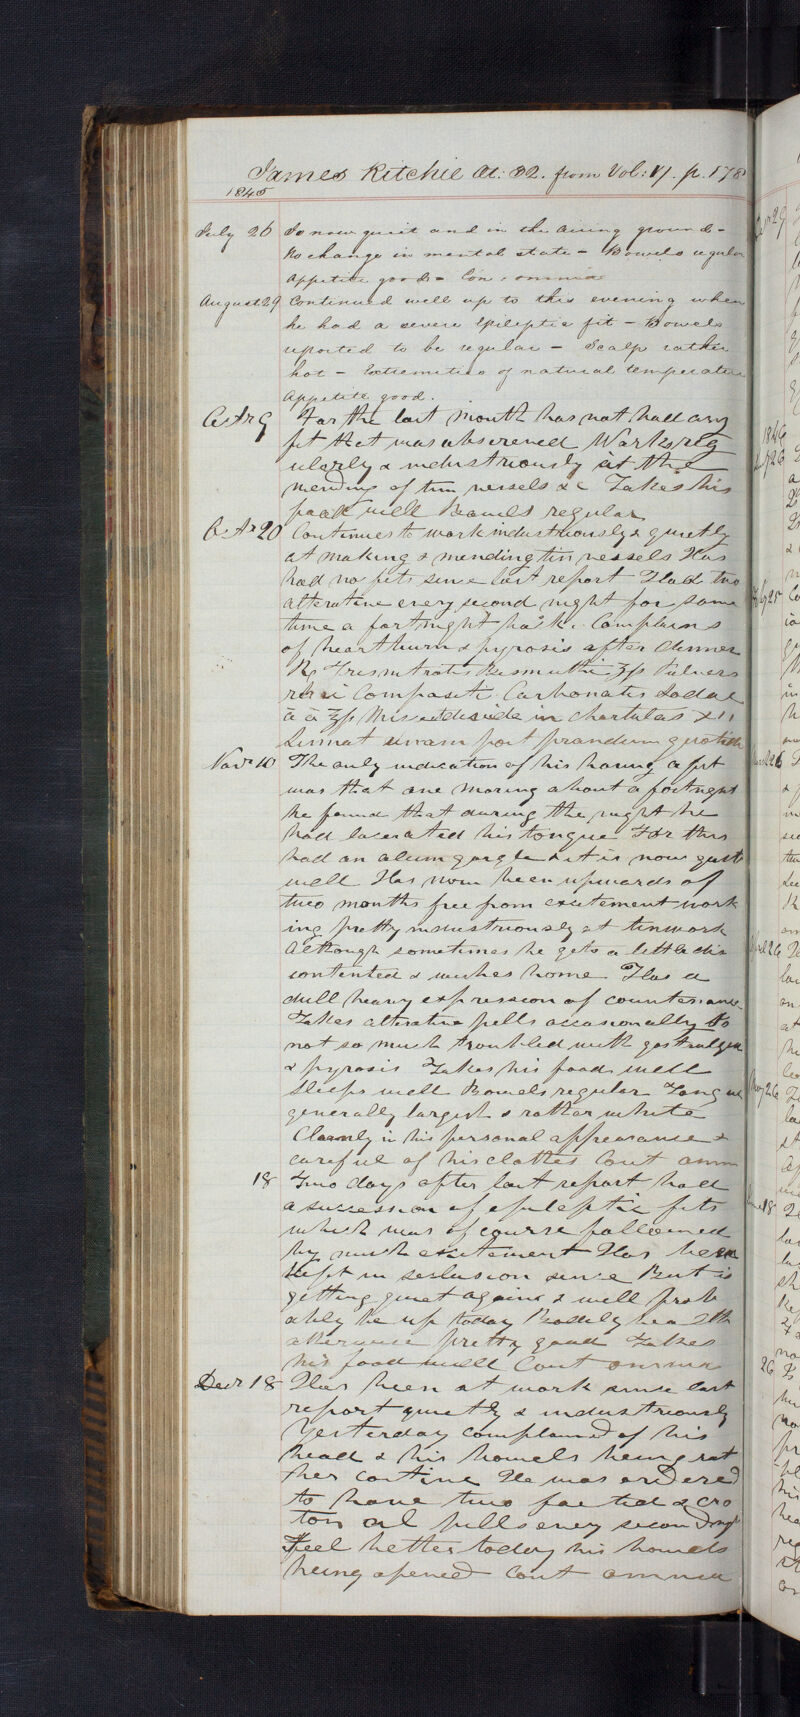 James Ritchie Æt: 32. from Vol: VI. p. 178
1845
July 26 Is now quiet and in the airing ground -
No change in mental state - Bowels regular
appetite good - Con. omnia
August 29 Continued well up to this evening when
he had a severe Epileptic fit - Bowels
reported to be regular - Scalp rather
hot - Extremities of natural temperature
Appetite good.
Octr 9 For the last month has not had any
fit that was observened Works reg
ularly & industriously at the
mending of tin vessels &c Takes his
food well Bowels regular
Octr 20 Continues to work industriously & quietly
at making & mending tin vessels Has
had no fits since last report Had two
alterative every second night for some
time a fortnight back. Complains
of heartburn & pyrosis after dinner
Rx Trisnitratis Bismuthi ʒss Pulveris
rhei Compositi Carbonatis Sodae
ā ā ʒss Misce divide in chartulas
Sumat unam post prandium quotidie
Novr 10 The only indication of his having a fit
was that one morning about a fortnight
he found that during the night he
had lacerated his tongue For this
had an alum gargle & it is now quite
well Has now been upwards of
two months free from excitement work
ing pretty industriously at tinwork
Although sometimes he gets a little dis
contented & wishes home Has a
dull heavy expression of countenance
Takes alterative pills occasionally Is
not so much troubled with gastralgia
& pyrosis Takes his food well
Sleeps well Bowels regular Tongue
generally largish & rather white
Cleanly in his personal appearance &
careful of his clothes Cont omn
18 Two days after last report had
a succession of epileptic fits
which was of course followed
by much excitement Has been
kept in seclusion since But is
getting quiet again & will prob
ably be up today Bodily health
otherwise pretty good Takes
his food well Cont omnia
Decr 18 Has been at work since last
report quietly & industriously
Yesterday complained of his
head & his bowels being rat
her costive He was ordered
to have two foetid & cro
ton oil pills every second night
Feel better today his bowels
being opened Cont omnia